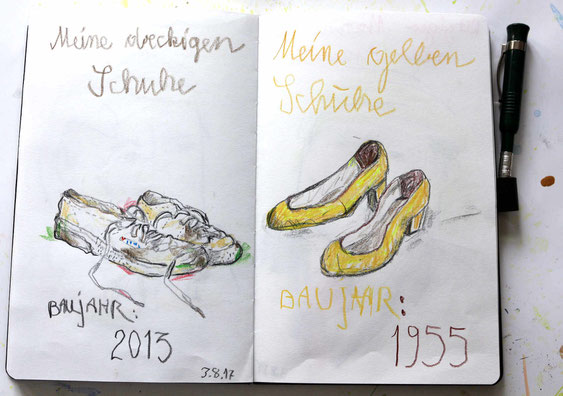 Meine dreckigen
Schuhe
BAUJAHR:
2013
3.8.17
Meine gelben
Schuhe
BAUJAAR:
1955